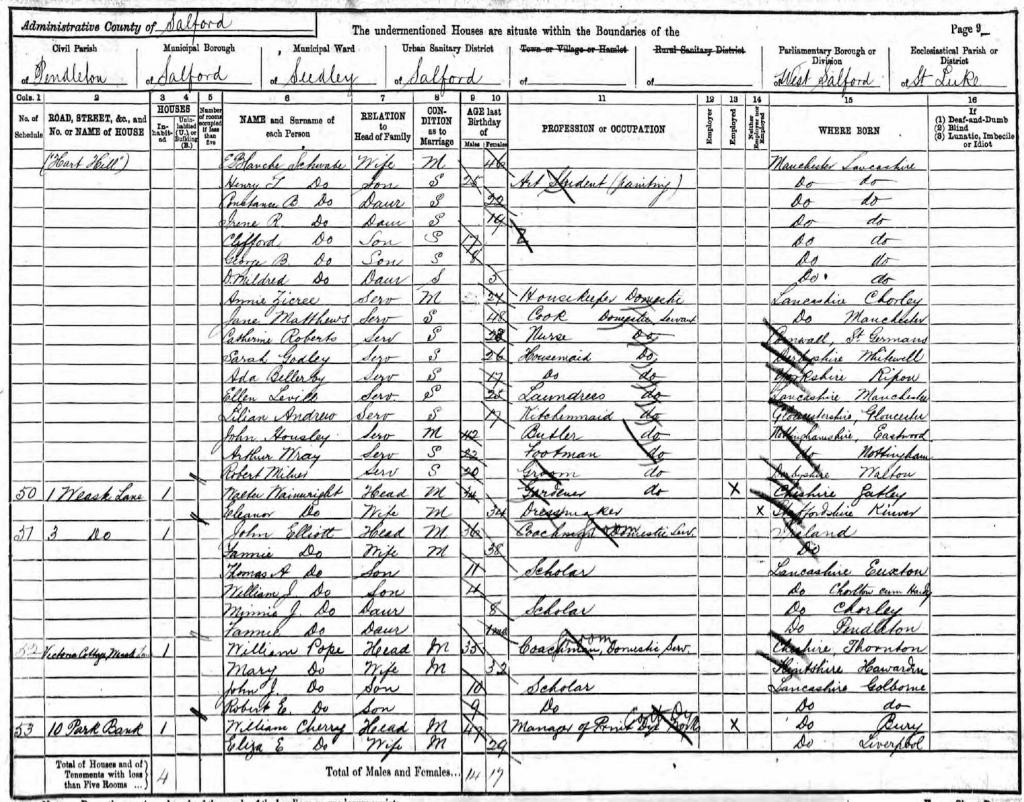 Administrative County of Salford
The undermentioned Houses are situate within the Boundaries of the
Page 9
Civil Parish Municipal Borough Municipal Ward Urban Sanitary District Town or Village or Hamlet Rural Sanitary District Parliamentary Borough or Division Ecclesiastical Parish or District
of Pendleton of Salford of Seedley of Salford of of of West Salford of St Luke
Cols. 1 2 3 4 5 6 7 8 9 10 11 12 13 14 15 16
No. of Schedule ROAD, STREET, &c., and No. or NAME of HOUSE HOUSES Inhabited Uninhabited (U.) or Building (B.) Number of rooms occupied if less than five NAME and Surname of each Person RELATION to Head of Family CONDITION as to Marriage AGE last Birthday of Males Females PROFESSION or OCCUPATION Employer Employed Neither Employer nor Employed WHERE BORN If (1) Deaf-and-Dumb (2) Blind (3) Lunatic, Imbecile or Idiot
("Hart Hill") E Blanche Schwabe Wife M 46 Manchester Lancashire
Henry T Do Son S 25 Art Student (painting) Do do
Constance B Do Daur S 22 Do do
Irene R. Do Daur S 19 Do do
Clifford Do Son S 17 Do do
George B. Do Son S 8 Do do
D. Mildred Do Daur S 5 Do do
Annie Serv M 27 Housekeeper Domestic Lancashire Chorley
Jane Matthews Serv S 48 Cook Domestic Servant Do Manchester
Catherine Roberts Serv S 28 Nurse Do Cornwall, St Germans
Sarah Godley Serv S 26 Housemaid Do Derbyshire Whitwell
Ada Bellerby Serv S 17 Do do Yorkshire Ripon
Ellen Levitt Serv S 25 Laundress do Lancashire Manchester
Lilian Andrew Serv S 17 Kitchenmaid do Gloucestershire, Gloucester
John Housley Serv M 42 Butler do Nottinghamshire, Eastwood
Arthur Wray Serv S 22 Footman do do Nottingham
Robert Milnes Serv S 20 Groom do Derbyshire Walton
50 1 Weask Lane 1 Walter Wainwright Head M Gardener do X Cheshire Gatley
Eleanor Do Wife M 34 Dressmaker X Staffordshire Kinver
51 3 Do 1 John Elliott Head M 36 Coachman Groom Domestic Serv. Ireland
Fannie Do Wife M 38 Do
Thomas A Do Son 11 Scholar Lancashire Euxton
William J. Do Son 4 Do Chorlton cum Hardy
Minnie J. Do Daur 8 Scholar Do Chorley
Fannie Do Daur 1mo Do Pendleton
52 Victoria Cottage Weask Lane 1 William Pope Head M 35 Coachman, Groom Domestic Serv. Cheshire Thornton
Mary Do Wife M 32 Flintshire Hawarden
John J. Do Son 10 Scholar Lancashire Golborne
Robert E. Do Son 9 Do Do do
53 10 Park Bank 1 William Cherry Head M 47 Manager of Print Dye Works X Do Bury
Eliza E Do Wife M 29 Do Liverpool
Total of Houses and of Tenements with less than Five Rooms ... 4 Total of Males and Females... 14 17